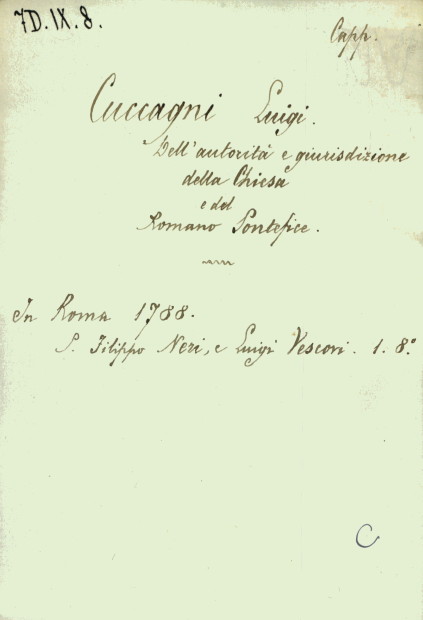 7D.IX.8.
Capp.
Cuccagni Luigi.
Dell'autorità e giurisdizione
della Chiesa
e del
Romano Pontefice.
In Roma 1788.
S. Filippo Neri, e Luigi Vescovi. 1. 8.º
C